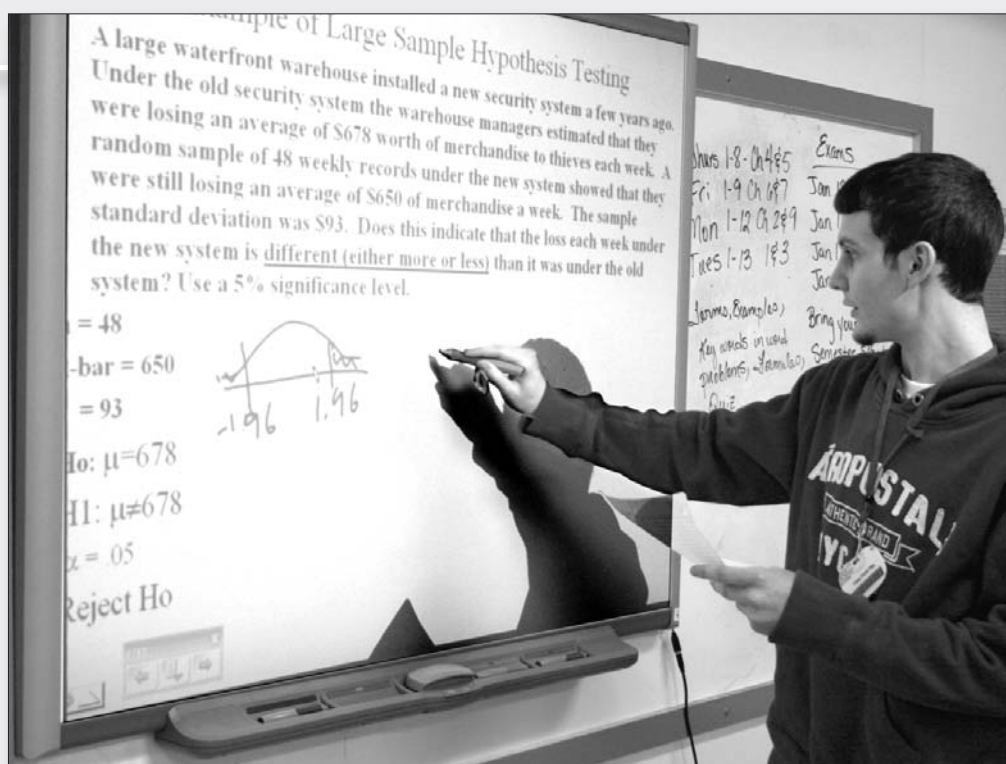 of Large Sample Hypothesis Testing
A large waterfront warehouse installed a new security system a few years ago.
Under the old security system the warehouse managers estimated that they
were losing an average of $678 worth of merchandise to thieves each week. A
random sample of 48 weekly records under the new system showed that they
were still losing an average of $650 of merchandise a week. The sample
standard deviation was $93. Does this indicate that the loss each week under
the new system is different (either more or less) than it was under the old
system? Use a 5% significance level.
= 48
-bar = 650
= 93
Ho: μ=678
H1: μ≠678
α = .05
Reject Ho
-1.96
1.96
Thurs 1-8 - Ch 4&5
Fri 1-9 Ch 6&7
Mon 1-12 Ch 2&9
Tues 1-13 1&3
Terms, Examples,
Key words in word
problems, Formulas,
Quiz
Exams
Jan
Jan
Jan
Jan
Bring your
Semester
AÉROPOSTALE
AUTHENTIC BRAND
NYC